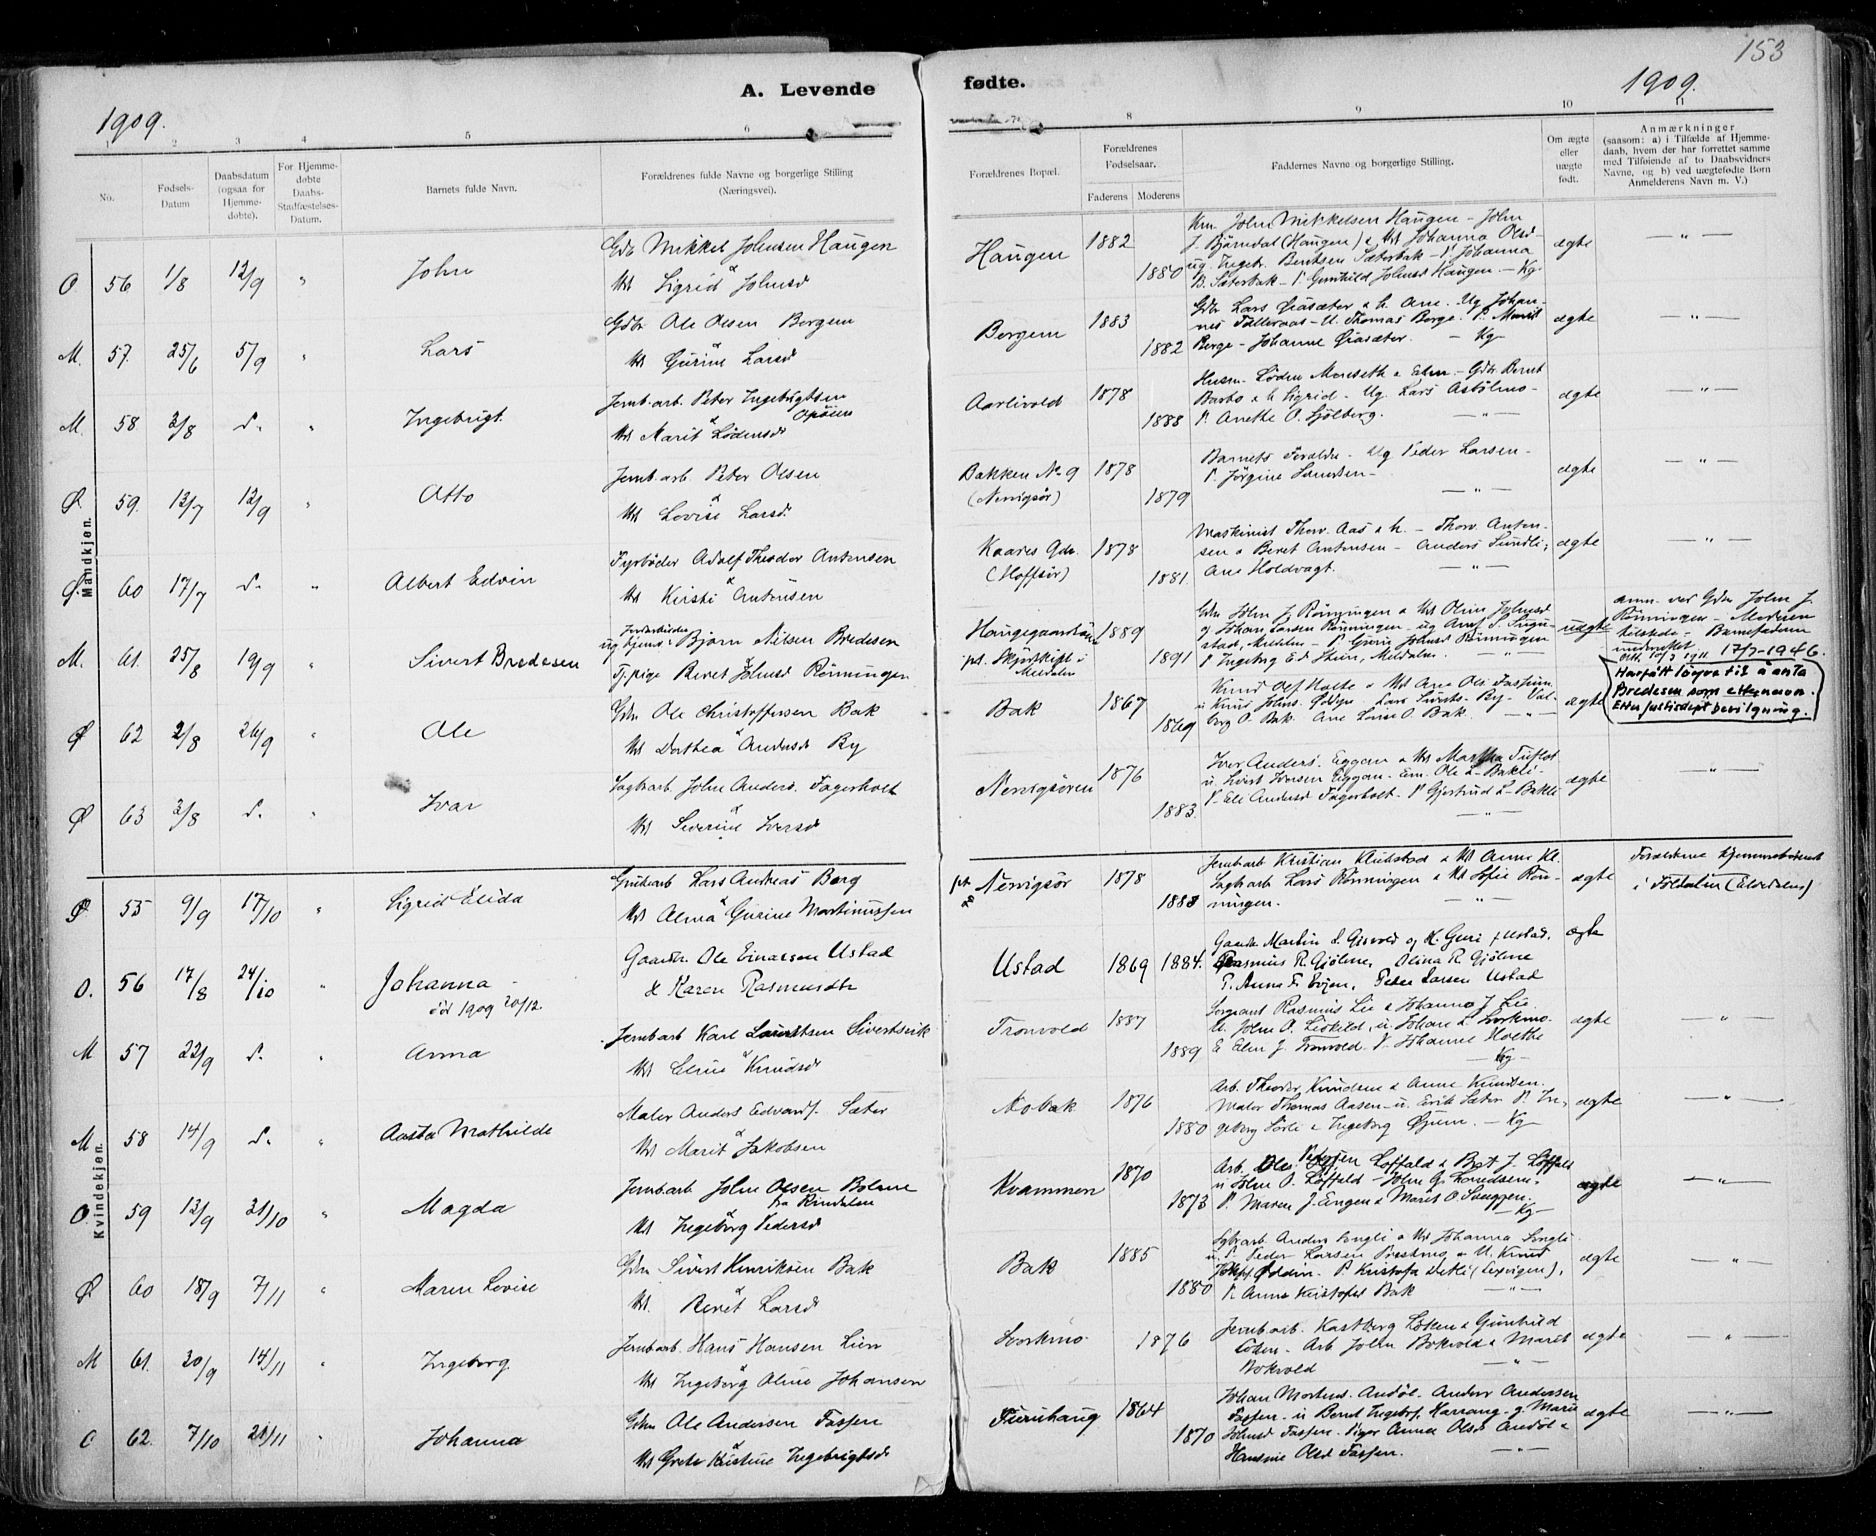 153
A. Levende fødte.
1909.
1909.
1 2 3 4 5 6 7 8 9 10 11
No.
Fødsels-Datum
Daabsdatum (ogsaa for Hjemme-døbte).
For Hjemme-døbte Daabs-Stadfæstelses-Datum.
Barnets fulde Navn.
Forældrenes fulde Navne og borgerlige Stilling (Næringsvei).
Forældrenes Bopæl.
Forældrenes Fødselsaar.
Faderens Moderens
Faddernes Navne og borgerlige Stilling.
Om ægte eller uægte født.
Anmærkninger
(saasom: a) i Tilfælde af Hjemme-
daab, hvem der har forrettet samme
med Tilføiende af to Daabsvidners
Navne, og b) ved uægtefødte Børn
Anmelderens Navn m. V.)
Mandkjøn.
O 56 1/8 12/9 " John
Gdbr Mikkel Johnsen Haugen
& Sigrid Johnsd
Haugen 1882 1880
John Mikkelsen Haugen - John
J. Bjørndal (Haugen) & Johanna Olsd
Ingebr. Berntsen Sæterbak - P. Johanna
B. Sæterbak - P. Gunhild Johnsd Haugen - Kg
ægte - " -
M. 57. 25/6 5/9 " Lars
Gdbr Ole Olsen Bergem
& Gurine Larsd
Bergem 1883 1882
Gdbr Lars Øiasæter & h. Ane. Ug. Johan-
nes - U. Thomas Berge. P. Marit
Berge - Johanne Øiasæter. - Kg
ægte - " -
M 58 3/8 d. " Ingebrigt
Jernb.arb. Peter Ingebrigtsen
& Marit Lødensd
Aarlivold 1878 1888
Husm. Løden Moseseth & - Gdbr Bernt
Barbo & h. Sigrid - Ug. Lars Asbølmo -
P. Anethe O. Sjølberg. - " -
ægte - " -
Ø. 59. 13/7 12/9 " Otto
Jernb.arb. Peter Olsen
& Lovise Larsd.
Bakken No 9 (Nervigsør) 1878 1879
Barnets Foræld. - Ug Peder Larsen -
P. Jørgine - " -
ægte - " -
Ø. 60 17/7 d. " Albert Edvin
Fyrbøder Adolf Theodor Antonsen
& Kirsti Antonsen
Kaares Gdr. (Hoffsør) 1878 1881.
Maskinist Thorv. Aas & h. - Thorv. Anton-
sen & Beret Antonsen - Anders Sundli,
Ane Holdvagt. - " -
ægte - " -
M. 61. 25/8 19/9 Sivert Bredesen
ug Bjørn Nilsen Bredesen
Tj. pige Beret Johnsd Rønningen
Meldalen 1889 1891
Gdbr John J. Rønningen & Olina Johnsd
og Johan Larsen Rønningen - ug
Meldalen - P. Gjerti Johnsd Rønningen
P. Ingeborg Ed. Steen, Meldalen. - " -
uægte
anm. ved Gdbr John J.
Rønningen - Moderen
tilstede - Barnefaderen
underrettet
17/7-1946.
Har fått løyve til å anta
Bredesen som etternavn.
Etter justisdept bevilgning.
Ø 62 2/8 26/9 " Ole
Gdbr Ole Christoffersen Bak
& Dorthea Andersd By
Bak 1867 1869
Knud Olf Holte & Ane Ols Fassum
u Knud Johns. - Lars Siverts. By - Val-
borg O. Bak. Ane Larsd O. Bak. - " -
ægte
Ø 63 3/8 d. " Ivar
Sagb.arb. John Anders. Fagerholt
& Siverine Iversd
Nervigsøren 1876 1883.
Iver Anders. Eggan & Martha
u. Sivert Iversen Eggan - Em. Ole L. Bakli -
P. Eli Andersd Fagerholt - P. Gjertrud L. Bakli
- " -
ægte - " -
Kvindekjøn.
Ø 55 9/9 17/10 " Sigrid Elida
Grubearb Lars Andreas Berg
& Alma Gurine Martinussen
pt Nervigsør 1878 1888
Jernb.arb Kristian Klubstad & Anne Kl.
Sagb.arb Lars Rønningen & Sofie Røn-
ningen. - " -
ægte
Forældrene hjemmehørende
i Foldalen
O. 56 17/8 24/10 " Johanna -
død 1909 20/12.
Gaardbr. Ole Einarsen Ustad
& Karen Rasmusdtr
Ustad 1869 1884.
Gaardbr Martin L. Gisvold og K. Guri Ustad.
Rasmus R. Gjølme, Olina R. Gjølme
P. Anna F. Evjen, Peter Larsen Ustad
Ægte
M 57 22/9 d. " Anna
Jernb.arb Karl Lauritsen Sivertsvik
& Eline Knudsd
Tronvold 1887 1889
Sergeant Rasmus Lie & Johanna J. Lie
U. John O. Liskild, u. Johan L. Svorkmo.
E Elen J. Tronvold. P. Johanne Holthe
- Kg -
ægte - " -
M 58 14/9 d. " Aasta Mathilde
Maler Anders Edvard. Sæter
& Marit Jakobsen
Mobak 1876 1880
Arb. Theodor Knudsen & Anne Knudsen.
Maler Thomas Aasen - u. Erik Sæter P. In-
geborg Sørli & Ingeborg Øyum. - Kg -
ægte - " -
O. 59 13/9 31/10 " Magda
Jernb.arb John Olsen Bolme
fra Rindalen
& Ingeborg Pedersd
Kvammen 1870 1873
Arb. Ole Pedersen Løffald & Bret J. Løffald
u. John O. Løffald - John G.
P. Maren J. Engen & Marit O. - Kg -
ægte - " -
Ø 60 18/9 7/11 " Maren Lovise
Gdbr Sivert Henriksen Bak
& Beret Larsd
Bak 1885 1880
Sagb.arb Anders Songli & Johanna Songli
u. P. Peder Larsen Prestmo, & U. Knud
P. Kristofa
P. Anna Kristofsd Bak - " -
ægte - " -
M 61. 20/9 14/11 " Ingeborg
Jernb.arb. Hans Hansen Lien
& Ingeborg Oline Johansen
Svorkmo 1876
Jernb.arb. Løken & Gunhild
Løken - Arb John Bokvold & Marit
Bokvold - " -
ægte - " -
O 62. 7/10 21/11 " Johanna
Gdbr Ole Andersen Fassen
& Grete Kristine Ingebrigtsd
Furuhaug 1864 1870
Johan Mortens. Andøl. Anders Andersen
Fassen - u Bernt Ingebr. Harrang - g. Marie
Johnsd Fassen. Piger Anna Olsd Andøl &
Hansine Olsd Fassen. - " -
ægte - " -